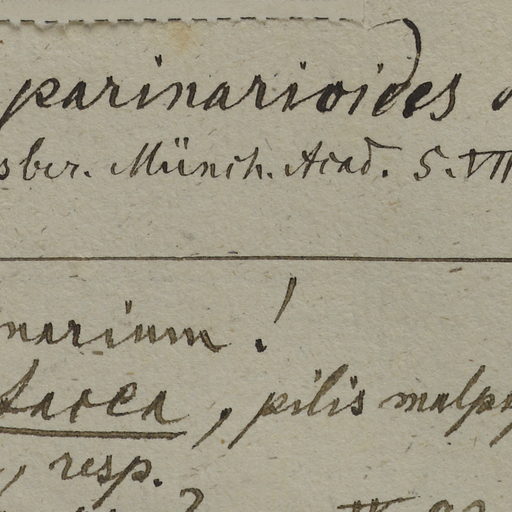 parinarioides
sber. Münch. Acad. 5. VII
narium!
, pilis malp
, resp.